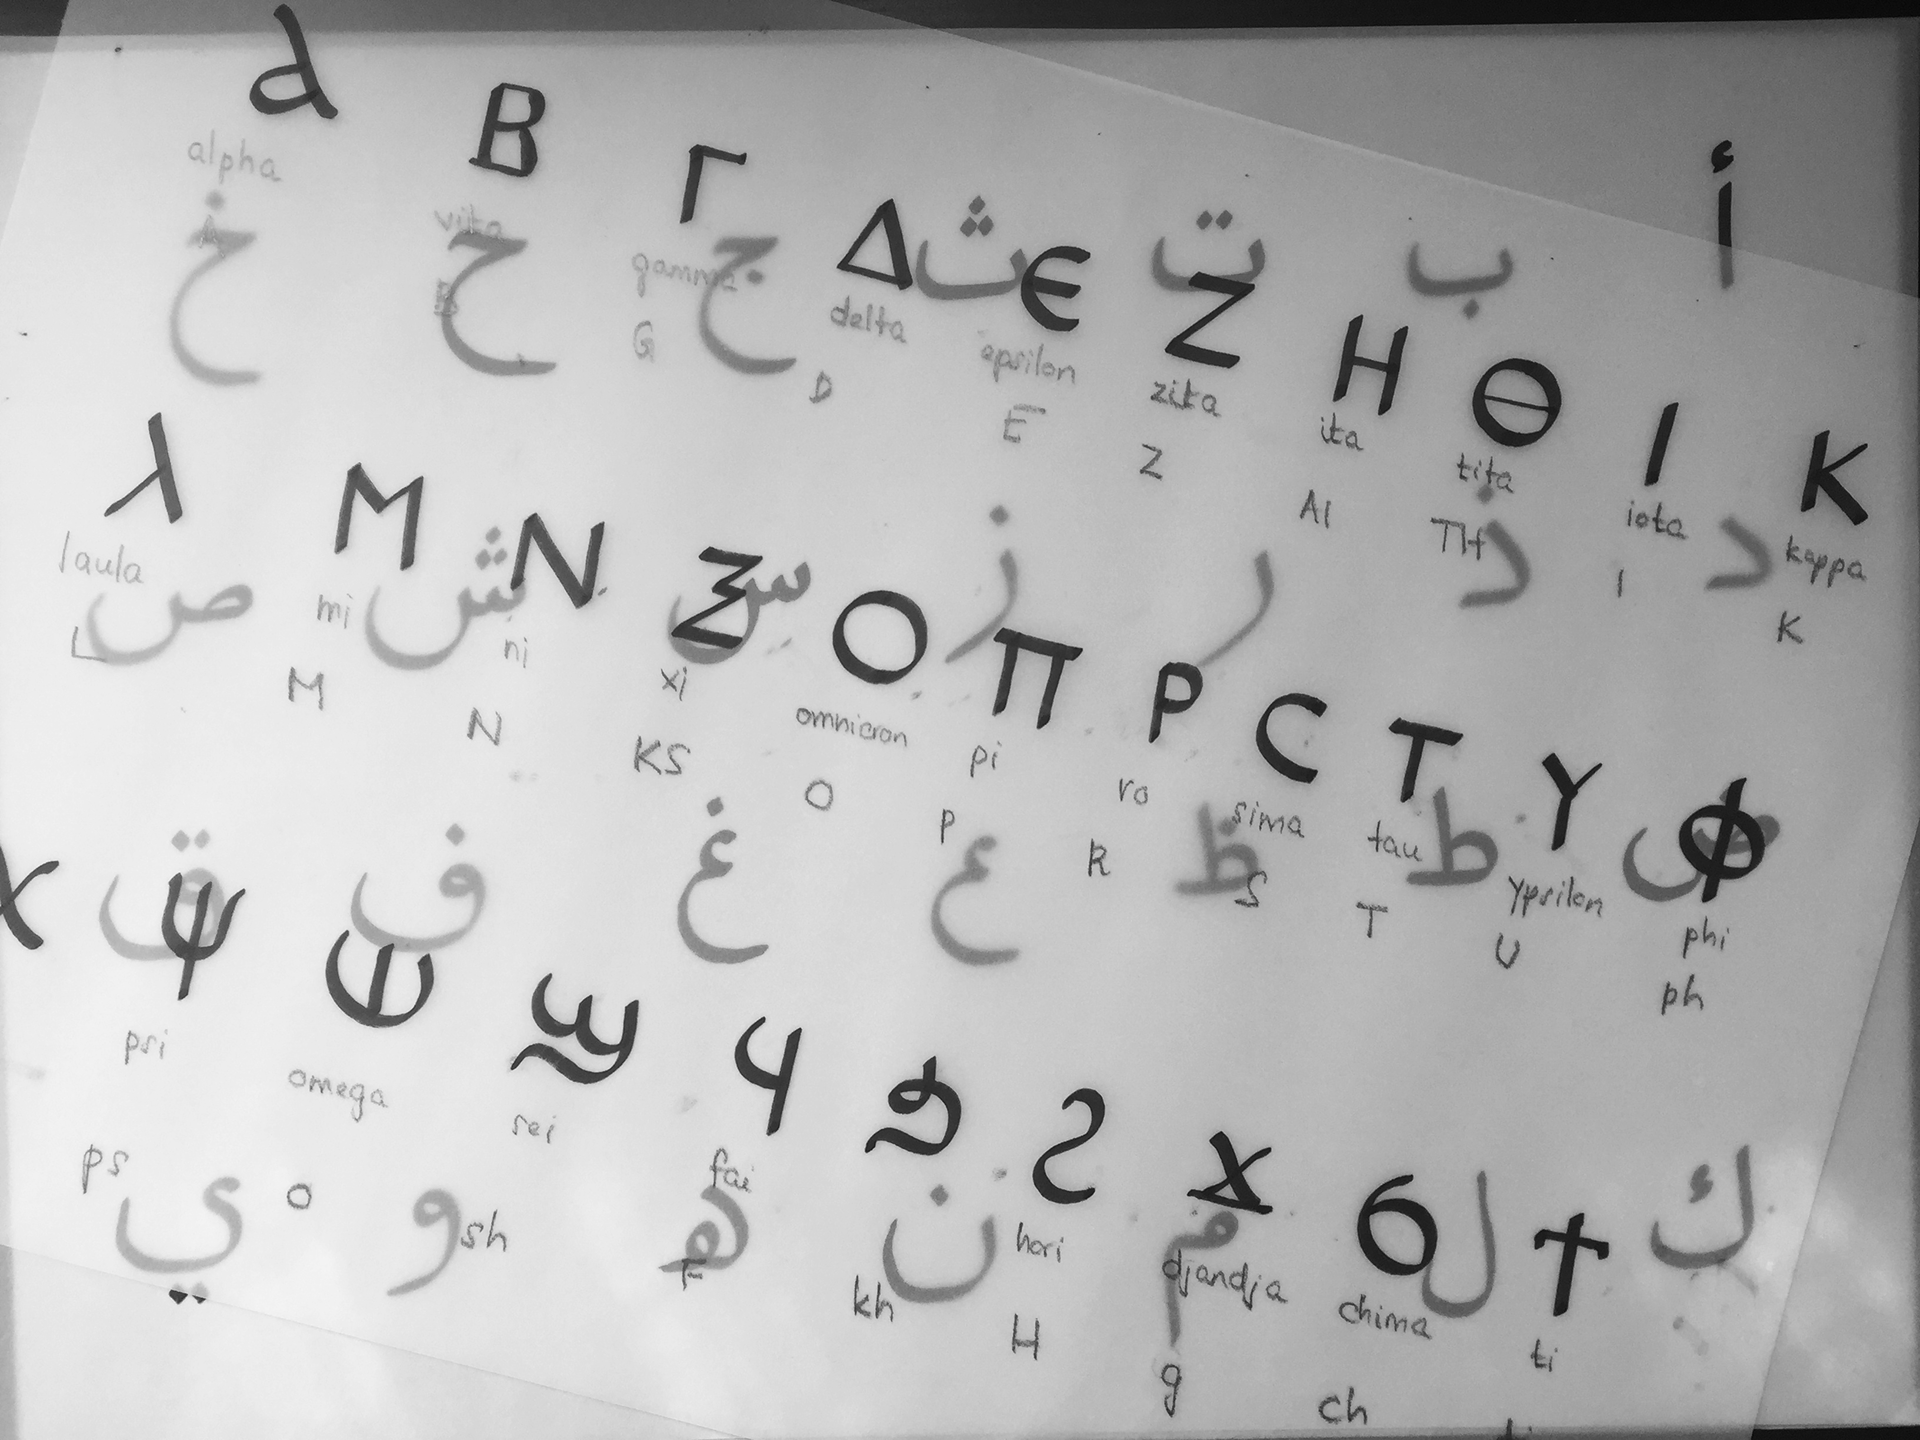 ⲁ Ⲃ Ⲅ Ⲇ Ⲉ Ⲍ Ⲏ Ⲑ Ⲓ Ⲕ
alpha vita gamma delta epsilon zita ita tita iota kappa
A B G D E Z AI TH I K
أ ب ت ث ج ح خ
ⲗ Ⲙ Ⲛ Ⲝ Ⲟ Ⲡ Ⲣ Ⲥ Ⲧ Ⲩ Ⲫ
laula mi ni xi omnicron pi ro sima tau ypsilon phi
L M N KS O P R S T U ph
د ذ ر ز س ش ص
Ⲭ Ⲯ Ⲱ Ϣ Ϥ Ϧ Ϩ Ϫ Ϭ Ϯ
psi omega sei fai hori djandja chima ti
ps o sh F kh H g ch
ض ط ظ ع غ ف ق
ك ل م ن ه و ي